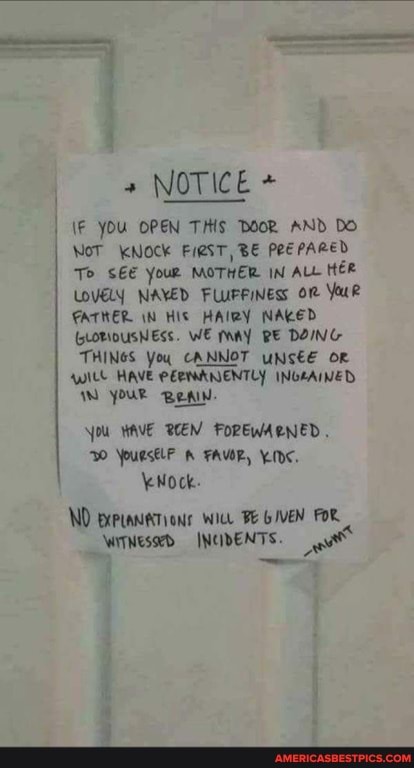 * NOTICE *
IF YOU OPEN THIS DOOR AND DO
NOT KNOCK FIRST, BE PREPARED
TO SEE YOUR MOTHER IN ALL HER
LOVELY NAKED FLUFFINESS OR YOUR
FATHER IN HIS HAIRY NAKED
GLORIOUSNESS. WE MAY BE DOING
THINGS YOU CANNOT UNSEE OR
WILL HAVE PERMANENTLY INGRAINED
IN YOUR BRAIN.
YOU HAVE BEEN FOREWARNED.
DO YOURSELF A FAVOR, KIDS.
KNOCK.
NO EXPLANATIONS WILL BE GIVEN FOR
WITNESSED INCIDENTS.
-MGMT
AMERICASBESTPICS.COM